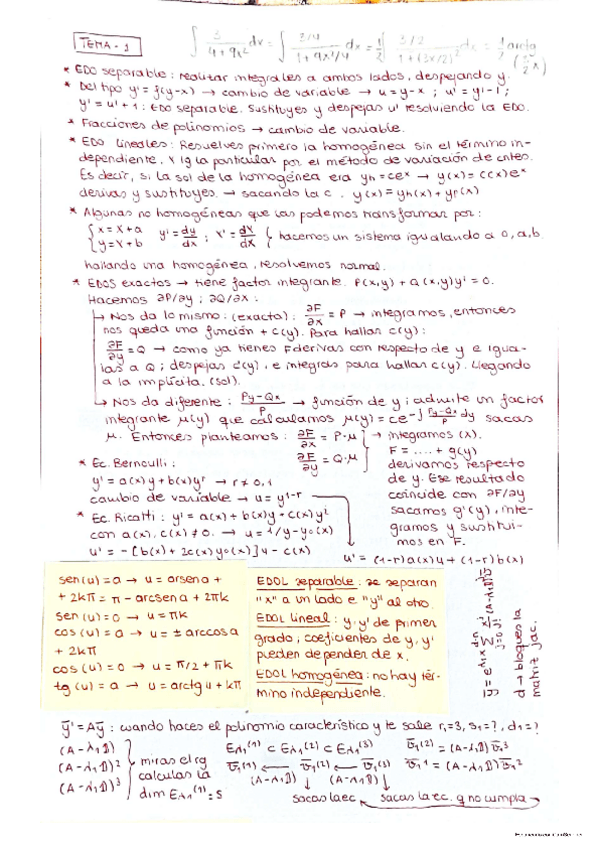 TEMA-1
∫ 3/(4+9x²) dx = ∫ (3/4)/(1+9x²/4) dx = 1/2 ∫ (3/2)/(1+(3x/2)²) dx = 1/2 arctg (3/2 x)
* EDO separable: realizar integrales a ambos lados, despejando y.
* Del tipo y' = f(y-x) → cambio de variable → u = y-x ; u' = y'-1 ;
y' = u'+1 : EDO separable. Sustituyes y despejas u' resolviendo la EDO.
* Fracciones de polinomios → cambio de variable.
* EDO lineales: Resuelves primero la homogénea sin el término in-
dependiente. Y lg la particular por el método de variación de cntes.
Es decir, si la sol de la homogénea era yh = ceˣ → y(x) = c(x)eˣ
derivas y sustituyes. → sacando la c. y(x) = yh(x) + yp(x)
* Algunas no homogéneas que las podemos transformar por:
{ x = X+a
y = Y+b y' = dy/dx ; Y' = dY/dX { hacemos un sistema igualando a 0, a, b
hallando una homogénea, resolvemos normal.
* EDOS exactos → tiene factor integrante. P(x,y) + Q(x,y)y' = 0.
Hacemos ∂P/∂y ; ∂Q/∂x :
↳ Nos da lo mismo: (exacta): ∂F/∂x = P → integramos, entonces
nos queda una función + c(y). Para hallar c(y):
∂F/∂y = Q → como ya tienes F derivas con respecto de y e igua-
las a Q ; despejas c'(y), e integras para hallar c(y). Llegando
a la implícita. (sol).
↳ Nos da diferente: (Py-Qx)/P → función de y ; admite un factor
integrante μ(y) que calculamos μ(y) = ce^-∫ (Py-Qx)/P dy sacas
μ. Entonces planteamos: ∂F/∂x = P·μ
∂F/∂y = Q·μ
→ integramos (x).
F = .... + g(y)
derivamos respecto
de y. Ese resultado
coincide con ∂F/∂y
sacamos g'(y), inte-
gramos y sustitui-
mos en F.
* Ec. Bernoulli:
y' = a(x)y + b(x)yʳ → r ≠ 0,1
cambio de variable → u = y¹⁻ʳ
u' = (1-r)a(x)u + (1-r)b(x)
* Ec. Ricatti: y' = a(x) + b(x)y + c(x)y²
con a(x), c(x) ≠ 0. → u = 1/y-y₀(x)
u' = -[b(x) + 2c(x)y₀(x)]u - c(x)
sen(u) = a → u = arsena +
+ 2kπ = π - arcsena + 2πk
sen(u) = 0 → u = πk
cos(u) = a → u = ± arccosa
+ 2kπ
cos(u) = 0 → u = π/2 + πk
tg(u) = a → u = arctg u + kπ
EDOL separable: se separan
"x" a un lado e "y" al otro.
EDOL lineal: y, y' de primer
grado ; coeficientes de y, y'
pueden depender de x.
EDOL homogénea: no hay tér-
mino independiente.
d → bloques la
matriz jac.
ȳ' = Aȳ : cuando haces el polinomio característico y te sale r₁=3, s₁=?, d₁=?
(A-λ₁𝟙)
(A-λ₁𝟙)²
(A-λ₁𝟙)³
miras el rg
calculas la
dim Eλ₁⁽¹⁾ = s
Eλ₁⁽¹⁾ ⊂ Eλ₁⁽²⁾ ⊂ Eλ₁⁽³⁾
v̄₁⁽¹⁾ ← v̄₁⁽²⁾ ← v̄₁⁽³⁾
(A-λ₁𝟙) (A-λ₁𝟙)
v̄₁⁽²⁾ = (A-λ₁𝟙)v̄₁³
v̄₁¹ = (A-λ₁𝟙)v̄₁²
sacas la ec. sacas la ec. q no cumpla